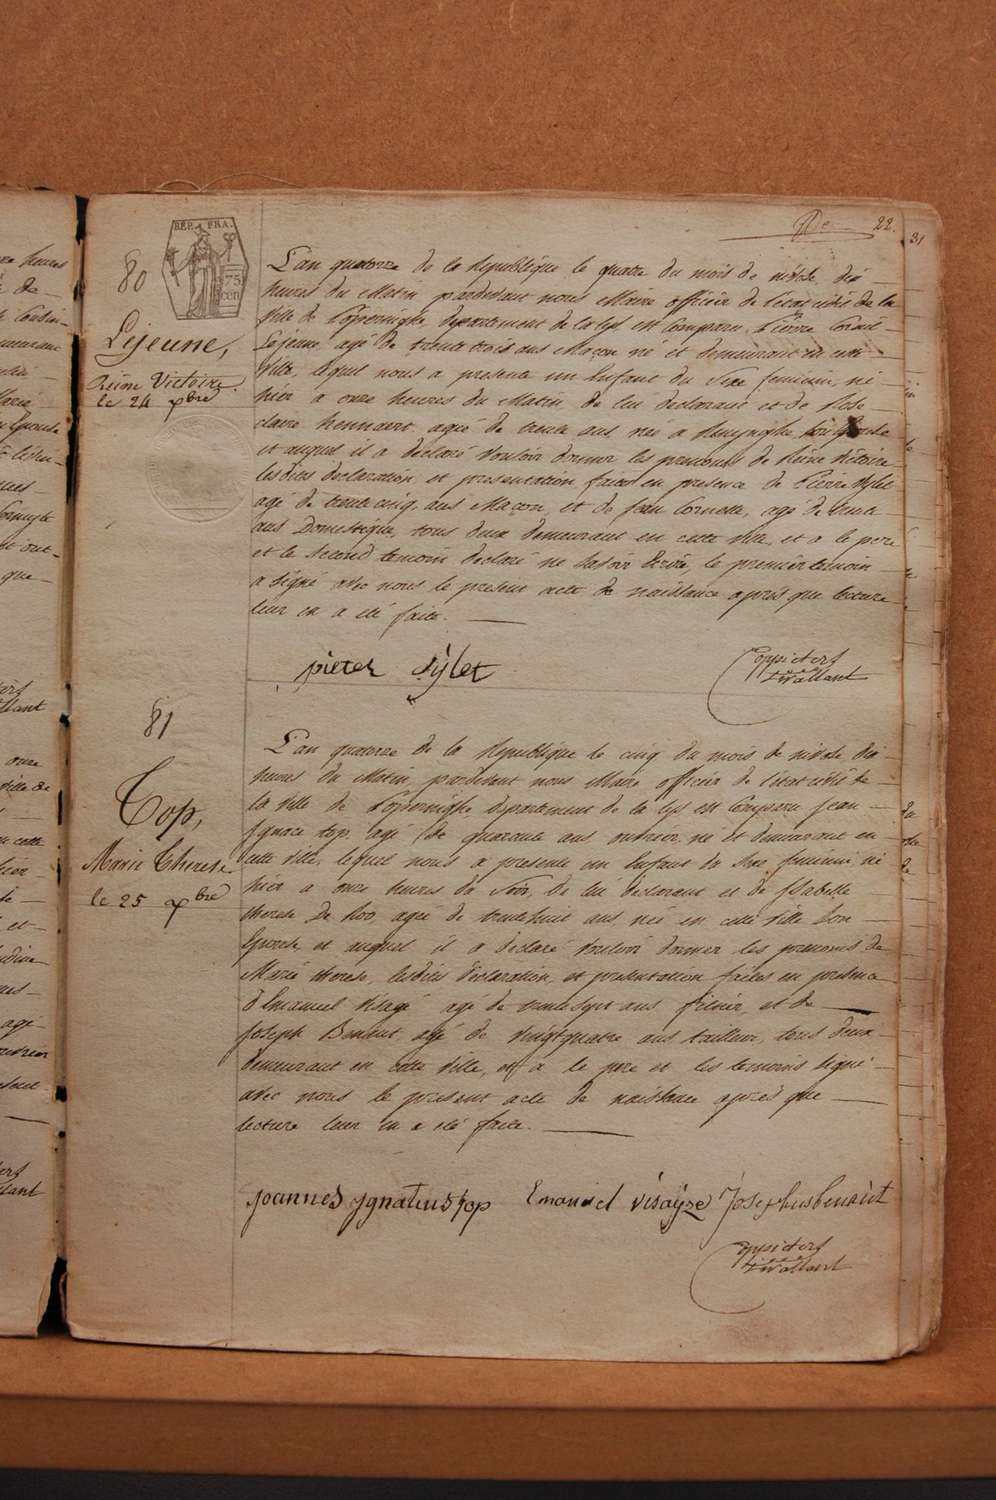 22.
31
REP. FRA.
75
cen
80
Lejeune,
Reine Victoire
le 24 xbre
L'an quatorze de la Republique le quatre du mois de nivôse, dix
heures du Matin pardevant nous Maire officier de l'etat civil de la
ville de Poperinghe, departement de la Lys est Comparu Pierre
Lejeune agé de trente trois ans Maçon né et demeurant en cette
ville, lequel nous a presenté un Enfant du Sexe feminin, né
hier a onze heures du Matin de lui declarant et de Rose
claire hennaert, agée de trente ans, née a Renynghe, son Epouse
et auquel il a declaré vouloir donner les prenoms de Reine Victoire
lesdites declaration, et presentation faites en presence de Pierre Sylet
agé de trente cinq ans Maçon, et de Jean Cornette, agé de trente
ans Domestique, tous deux demeurant en cette ville, et a le pere
et le second temoin declaré ne savoir Ecrire, le premier temoin
a signé avec nous le present acte de naissance après que lecture
leur en a été faite.
pieter sylet
81
Top,
Marie Therese
le 25 xbre
L'an quatorze de la Republique le cinq du mois de nivôse dix
heures du Matin, pardevant nous Maire officier de l'état civil de
la ville de Poperinghe, departement de la Lys est Comparu Jean
Ignace top, agé de quarante ans ouvrier, né et demeurant en
cette ville, lequel nous a presenté un Enfant du Sexe feminin né
hier a onze heures du Soir, de lui declarant et de Isabelle
therese De Roo, agée de trentehuit ans née en cette ville Son
Epouse, et auquel il a declaré vouloir donner les prenoms de
Marie therese, lesdites declaration, et presentation faites en presence
D'Emanuel Visage agé de trentesept ans, et de
Joseph Benaut, agé de vingtquatre ans tailleur, tous deux
demeurant en cette ville, et a le pere et les temoins signé
avec nous le present acte de naissance après que
lecture leur en a été faite.
Joannes Ignatius top Emanuel visaÿze Josephus benaùt